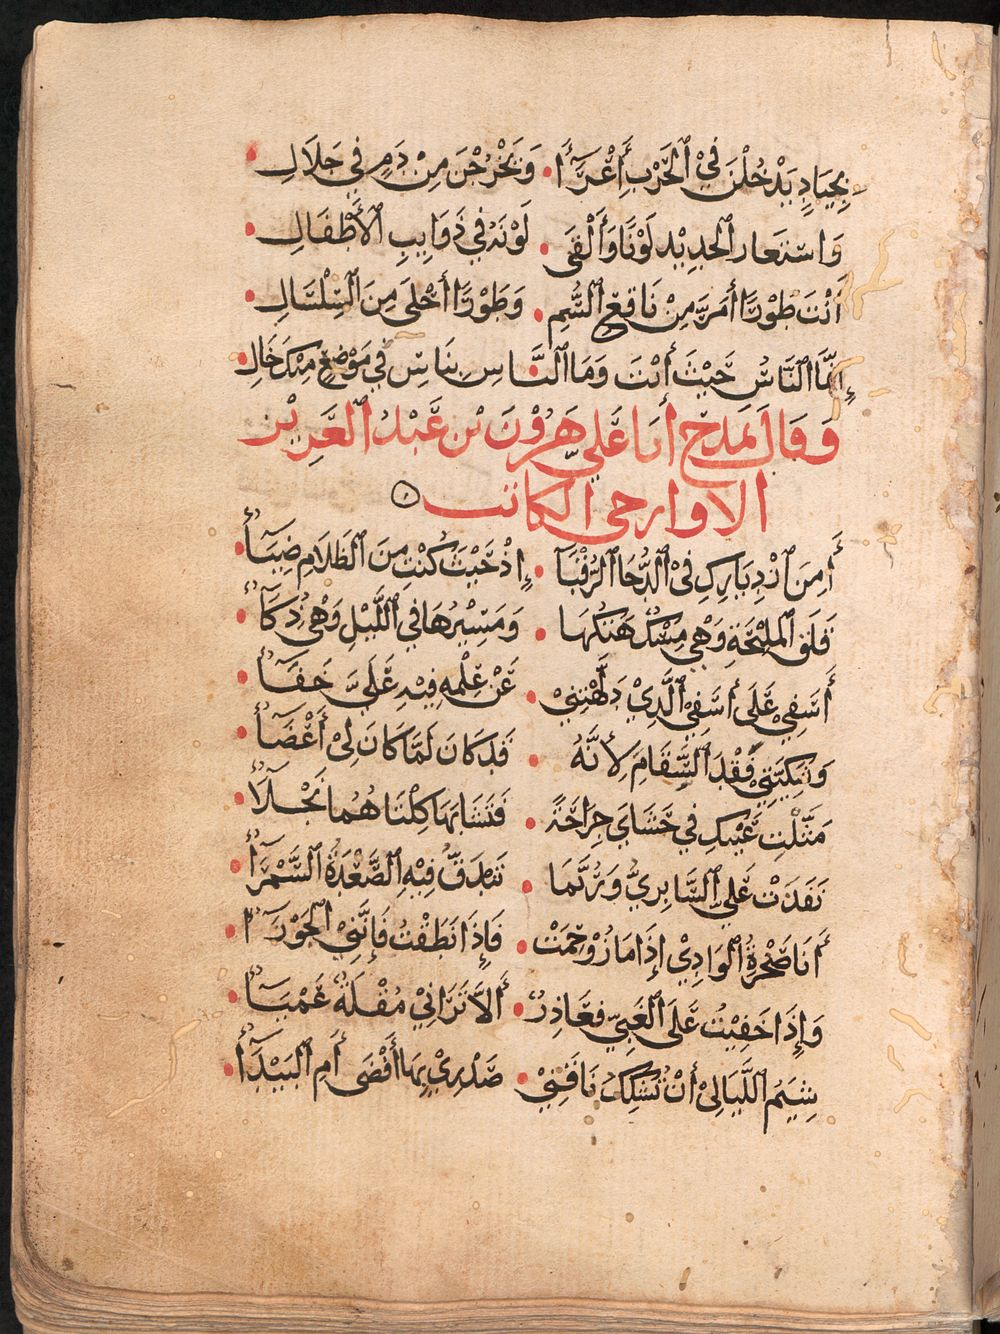 بِجِيَادٍ يَدْخُلْنَ فِيْ الْحَرْبِ أَعْرَآءً وَيَخْرُجْنَ مِنْ دَمٍ فِي جَلَالِ
وَاسْتَعَارَ الْحَدِيْدُ لَوْنًا وَأَلْقَى لَوْنَهُ فِي ذَوَايِبِ الْأَطْفَالِ
أَنْتَ طَوْرًا أَمَرُّ مِنْ نَاقِعِ السُّمِ وَطَوْرًا أَحْلَى مِنَ السِّلْسَالِ
إِنَّمَا النَّاسُ حَيْثُ أَنْتَ وَمَا النَّاسُ بِنَاسٍ فِي مَوْضِعٍ مِنْكَ خَالِ
وَقَالَ يَمْدَحُ أَبَا عَلِيٍّ هَرُوْنَ بْنَ عَبْدِ الْعَزِيْزِ
الاوارجى الكاتب
أَمِنَ ازْدِيَارَكِ فِى الدُّجَا الرُّقَبَآءُ إِذْ حَيْثُ كُنْتِ مِنَ الظَّلَامِ ضِيَآءُ
قَلَقُ الْمَلِيْحَةِ وَهْيَ مِسْكٌ هَتْكُهَا وَمَسِيْرُهَا فِي اللَّيْلِ وَهْيَ ذُكَآءُ
أَسَفِيْ عَلَى أَسَفِيْ الَّذِيْ دَلَّهْتِنِيْ عَنْ عِلْمِهِ فَبِهِ عَلَيَّ خَفَآءُ
وَشَكِيَّتِيْ فَقْدُ السَّقَامِ لِأَنَّهُ قَدْ كَانَ لَمَّا كَانَ لِىْ أَعْضَآءُ
مَثَّلْتِ عَيْنَكِ فِي حَشَايَ جِرَاحَةً فَتَشَابَهَا كِلْتَاهُمَا نَجْلَآءُ
نَفَذَتْ عَلَيَّ السَّابِرِيَّ وَرُبَّمَا تَنْدَقُّ فِيْهِ الصَّعْدَةُ السَّمْرَآءُ
أَنَا صَخْرَةُ الْوَادِيْ إِذَا مَا زُوْحِمَتْ فَإِذَا نَطَقْتُ فَإِنَّنِيْ الْجَوْزَآءُ
وَإِذَا خَفِيْتُ عَلَى الْغَبِيِّ فَعَاذِرٌ أَلَّا تَرَانِيْ مُقْلَةٌ عَمْيَآءُ
شِيَمُ اللَّيَالِىْ أَنْ تُشَكِّكَ نَاقَتِيْ صَدْرِيْ بِهَا أَفْضَى أَمِ الْبَيْدَآءُ